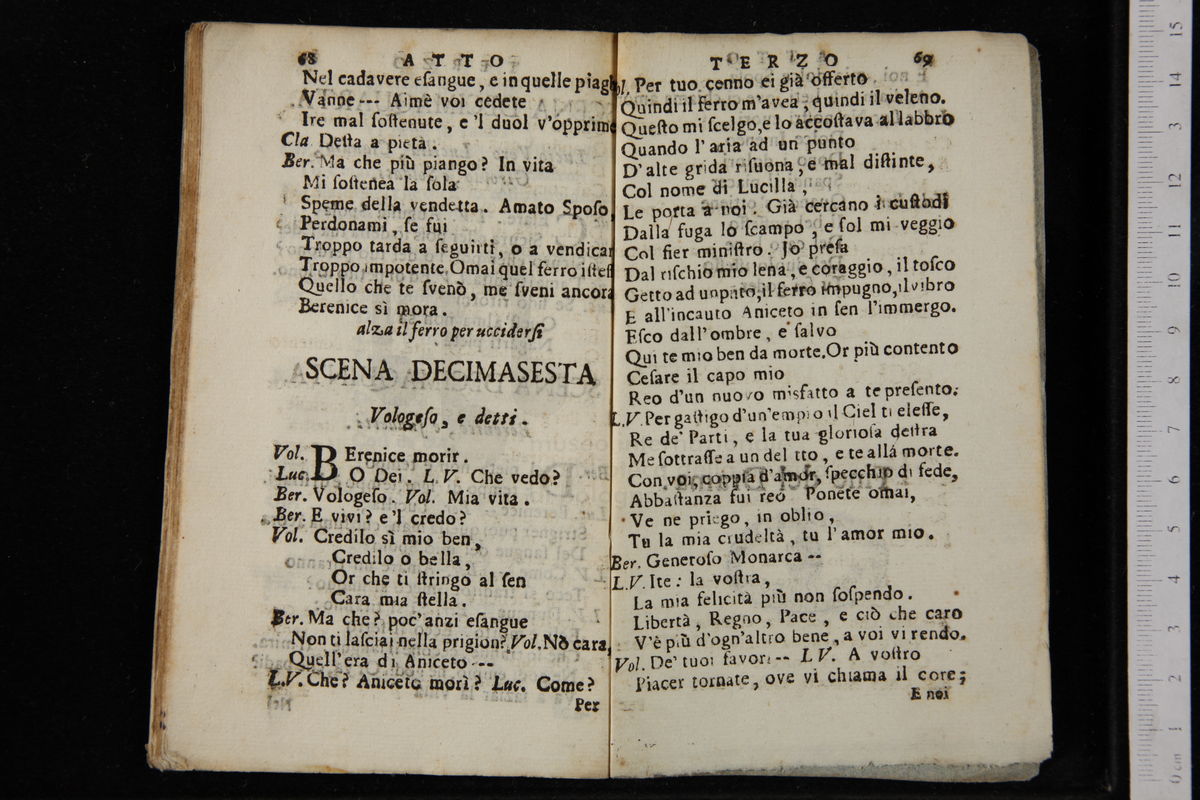 68 ATTO
Nel cadavere eſangue, e in quelle piagh
Vanne --- Aimè voi cedete
Ire mal ſoſtenute, e 'l duol v'opprime
Cla Deſta a pietà.
Ber. Ma che più piango? In vita
Mi ſoſtenea la ſola
Speme della vendetta. Amato Spoſo,
Perdonami, ſe fui
Troppo tarda a ſeguirti, o a vendicar
Troppo impotente. Omai quel ferro iſteſ
Quello che te ſvenò, me ſveni ancora
Berenice sì mora.
alza il ferro per ucciderſi
SCENA DECIMASESTA
Vologeſo, e detti.
Vol. BErenice morir.
Luc. O Dei. L.V. Che vedo?
Ber. Vologeſo. Vol. Mia vita.
Ber. E vivi? e 'l credo?
Vol. Credilo sì mio ben,
Credilo o bella,
Or che ti ſtringo al ſen
Cara mia ſtella.
Ber. Ma che? poc'anzi eſangue
Non ti laſciai nella prigion? Vol. Nò cara,
Quell'era di Aniceto ---
L.V. Che? Aniceto morì? Luc. Come?
Per
TERZO 69
ol. Per tuo cenno ei già offerto
Quindi il ferro m'avea, quindi il veleno.
Queſto mi ſcelgo, e lo accoſtava al labbro
Quando l'aria ad un punto
D'alte grida riſuona, e mal diſtinte,
Col nome di Lucilla,
Le porta a noi. Già cercano i cuſtodi
Dalla fuga lo ſcampo, e ſol mi veggio
Col fier miniſtro. Jo preſa
Dal riſchio mio lena, e coraggio, il toſco
Getto ad un pūto, il ferro impugno, il vibro
E all'incauto Aniceto in ſen l'immergo.
Eſco dall'ombre, e ſalvo
Qui te mio ben da morte. Or più contento
Ceſare il capo mio
Reo d'un nuovo misfatto a te preſento.
L.V. Per gaſtigo d'un'empio il Ciel ti eleſſe,
Re de' Parti, e la tua glorioſa deſtra
Me ſottraſſe a un del tto, e te allá morte.
Con voi, coppia d'amor, ſpecchio di fede,
Abbaſtanza fui reo Ponete omai,
Ve ne priego, in oblio,
Tu la mia crudeltà, tu l'amor mio.
Ber. Generoſo Monarca --
L.V. Ite: la voſtra,
La mia felicità più non ſoſpendo.
Libertà, Regno, Pace, e ciò che caro
V'è più d'ogn'altro bene, a voi vi rendo.
Vol. De' tuoi favori -- L V. A voſtro
Piacer tornate, ove vi chiama il core;
E noi
15
14
13
12
11
10
9
8
7
6
5
4
3
2
1
0 cm